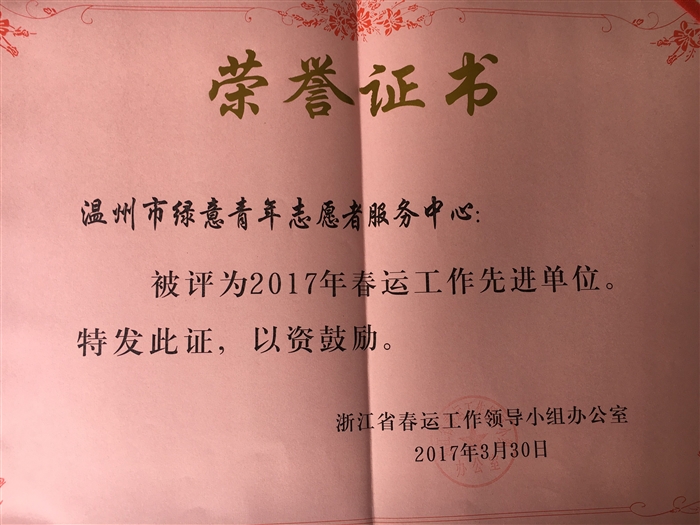 荣誉证书
温州市绿意青年志愿者服务中心:
被评为2017年春运工作先进单位。
特发此证，以资鼓励。
浙江省春运工作领导小组办公室
2017年3月30日
办公室